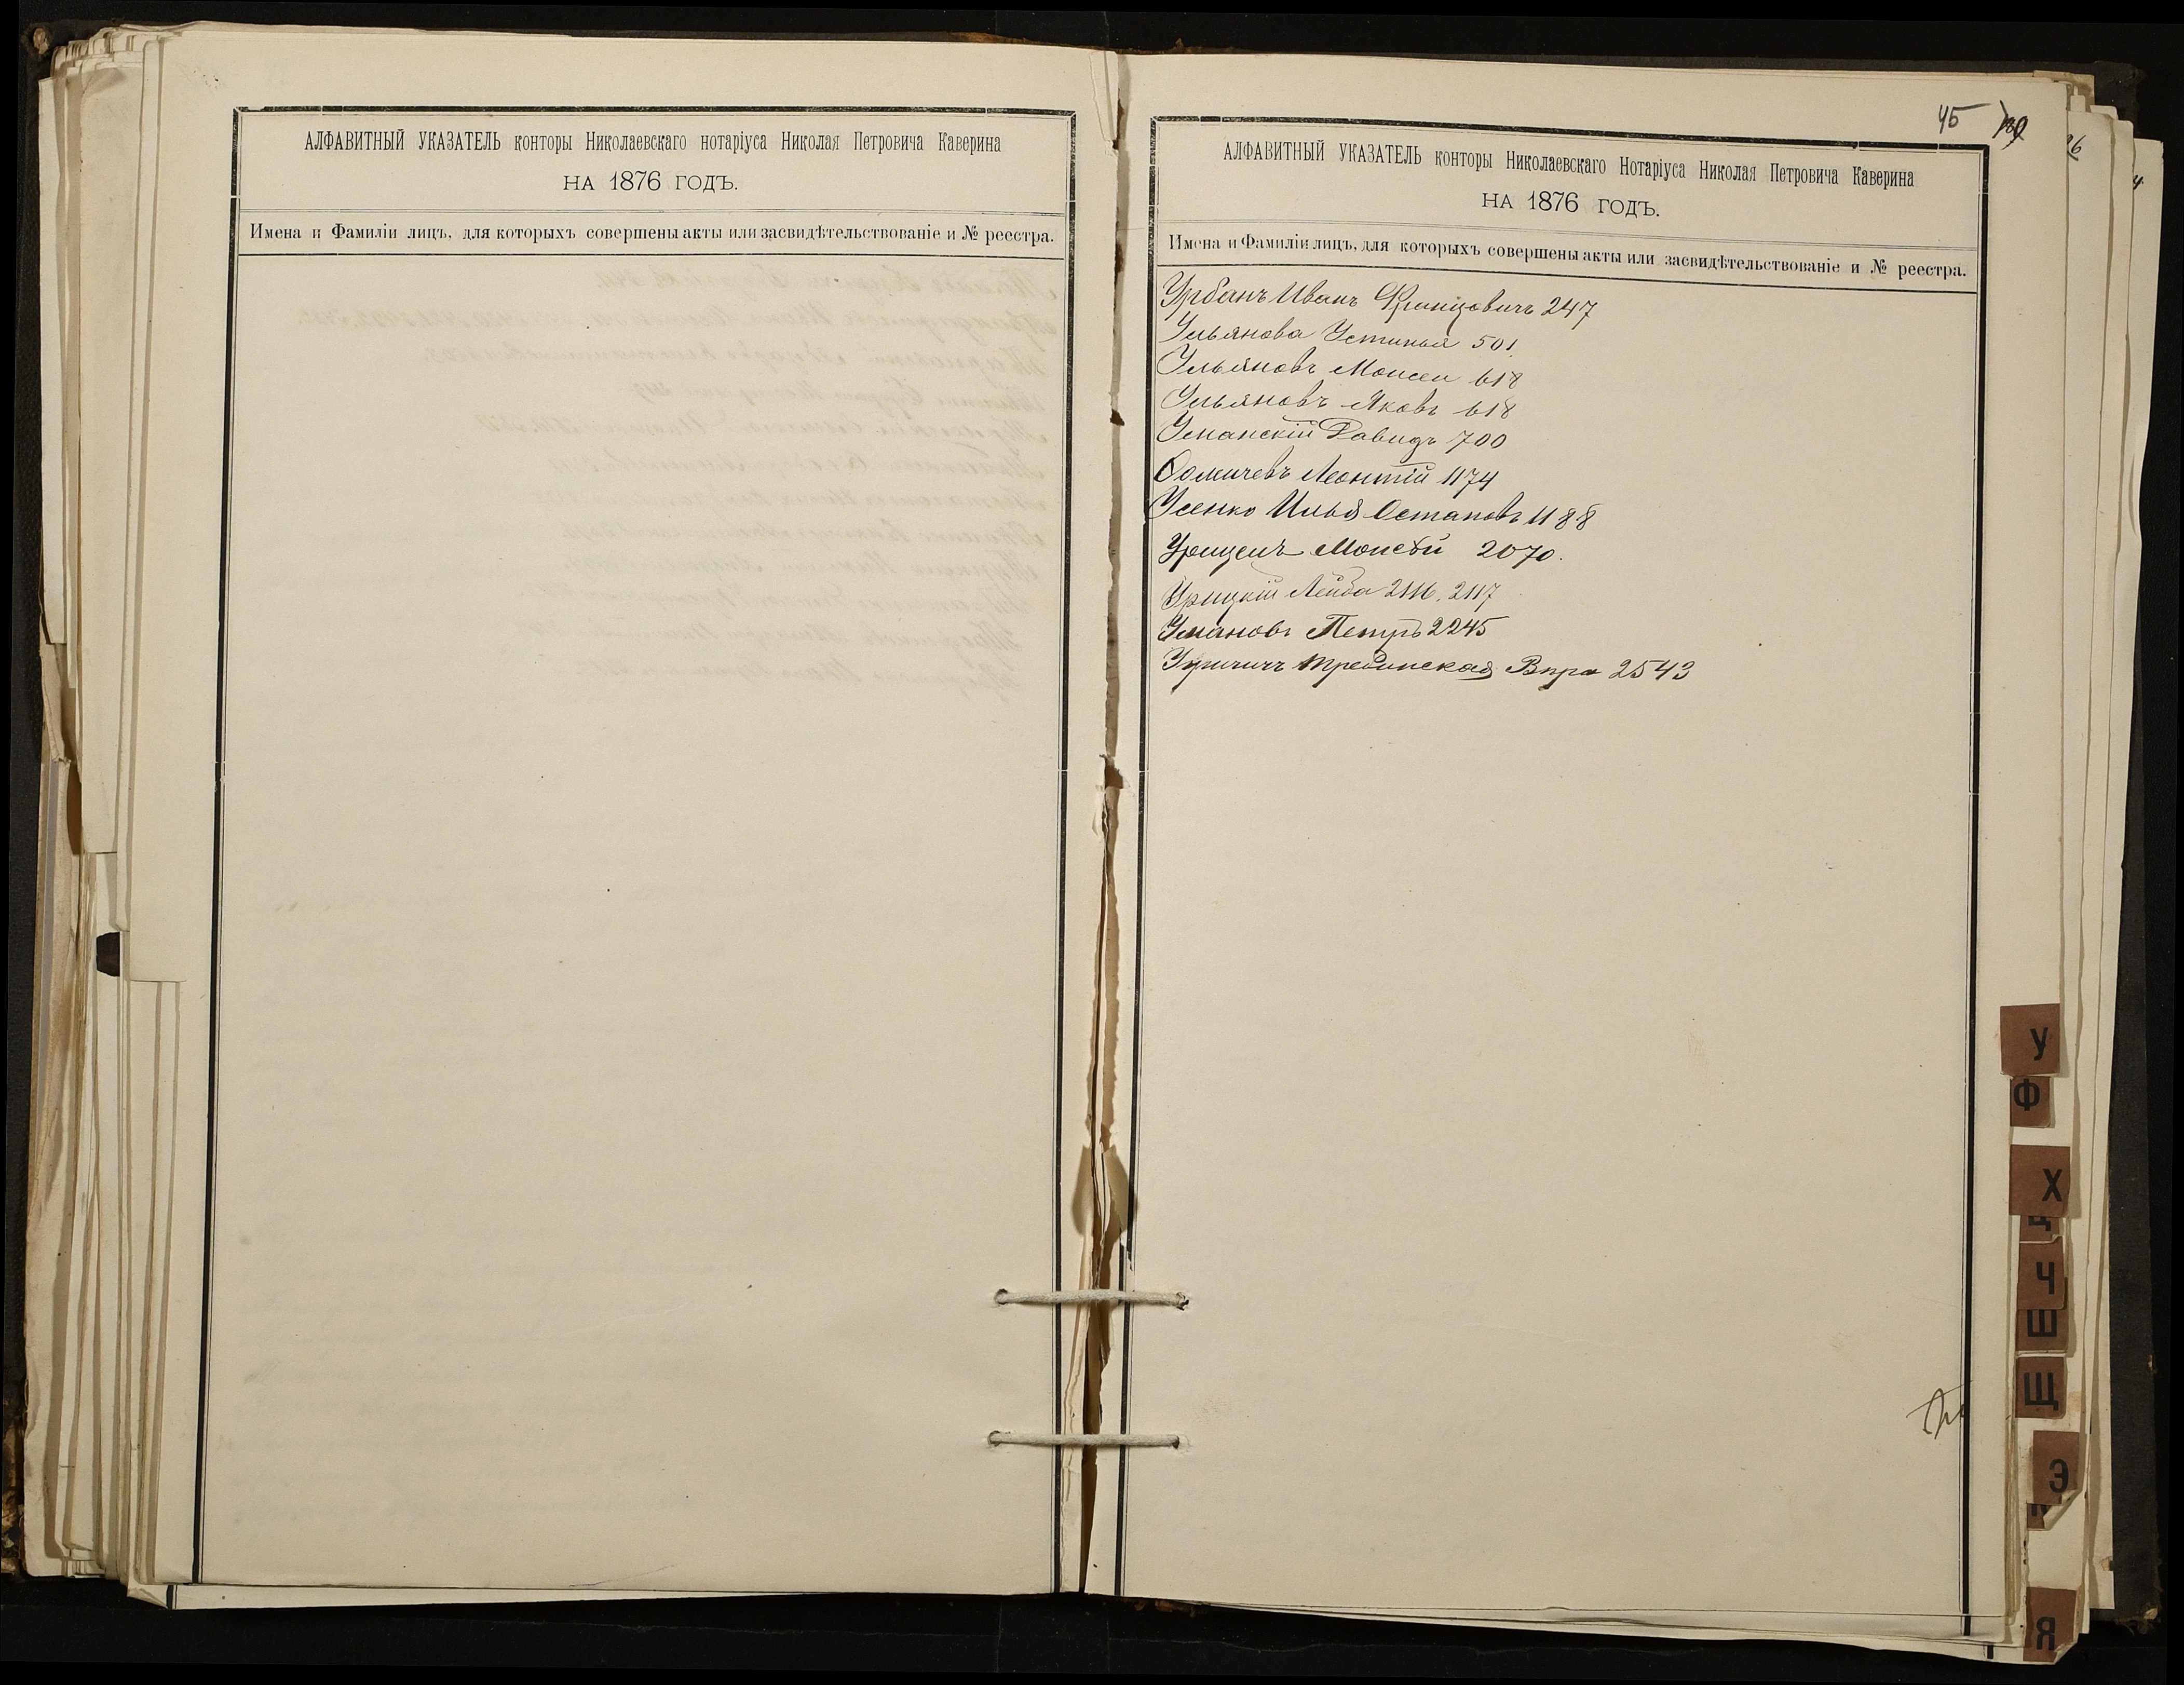 АЛФАВИТНЫЙ УКАЗАТЕЛЬ конторы Николаевскаго нотаріуса Николая Петровича Каверина
НА 1876 ГОДЪ.
Имена и Фамиліи лицъ, для которыхъ совершены акты или засвидѣтельствованіе и № реестра.
45
АЛФАВИТНЫЙ УКАЗАТЕЛЬ конторы Николаевскаго Нотаріуса Николая Петровича Каверина
НА 1876 ГОДЪ.
Имена и Фамиліи лицъ, для которыхъ совершены акты или засвидѣтельствованіе и № реестра.
Урбанъ Иванъ Францовичъ 247
Ульянова Устинья 501
Ульяновъ Моисеи 618
Ульяновъ Яковъ 618
Уманскій Давидъ 700
Леонтій 1174
Усенко Илья Остаповъ 1188
Урицеш Моисѣй 2070.
Урицкій Лейба 2116, 2117
Умановъ Петръ 2245
Требинская 2543
У
Ф
Х
Ц
Ч
Ш
Щ
Э
Я